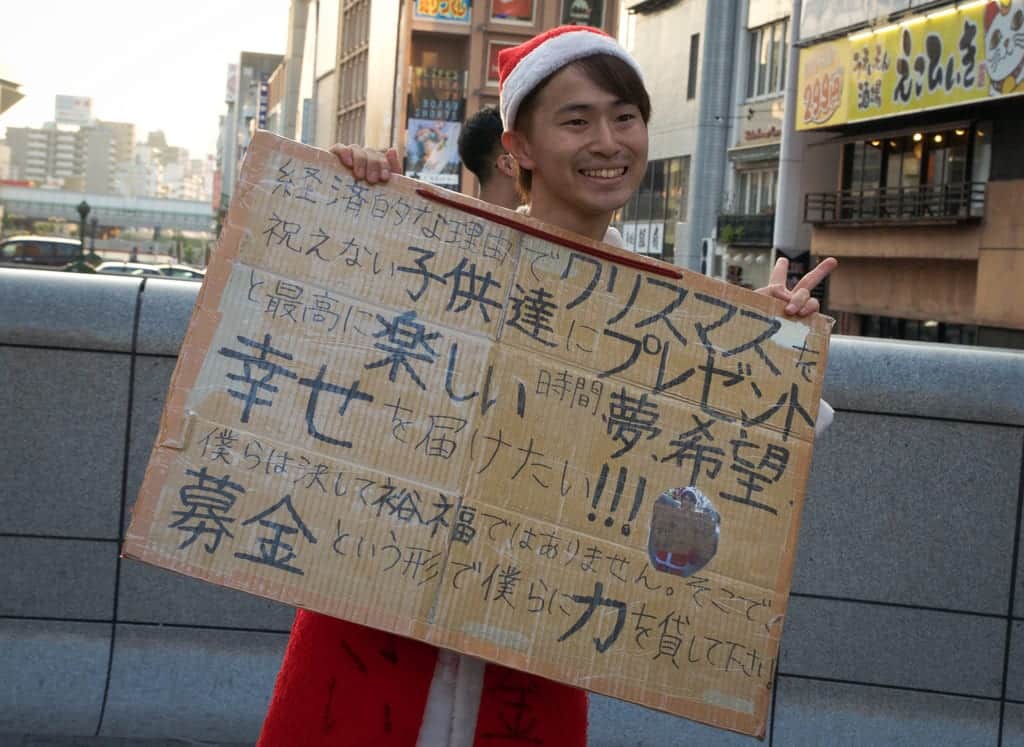 経済的な理由でクリスマスを
祝えない子供達にプレゼント
と最高に楽しい時間、夢、希望、
幸せを届けたい!!!
僕らは決して裕福ではありません。そこで、
募金という形で僕らに力を貸して下さい!
299円
酒場
えこひいき
金